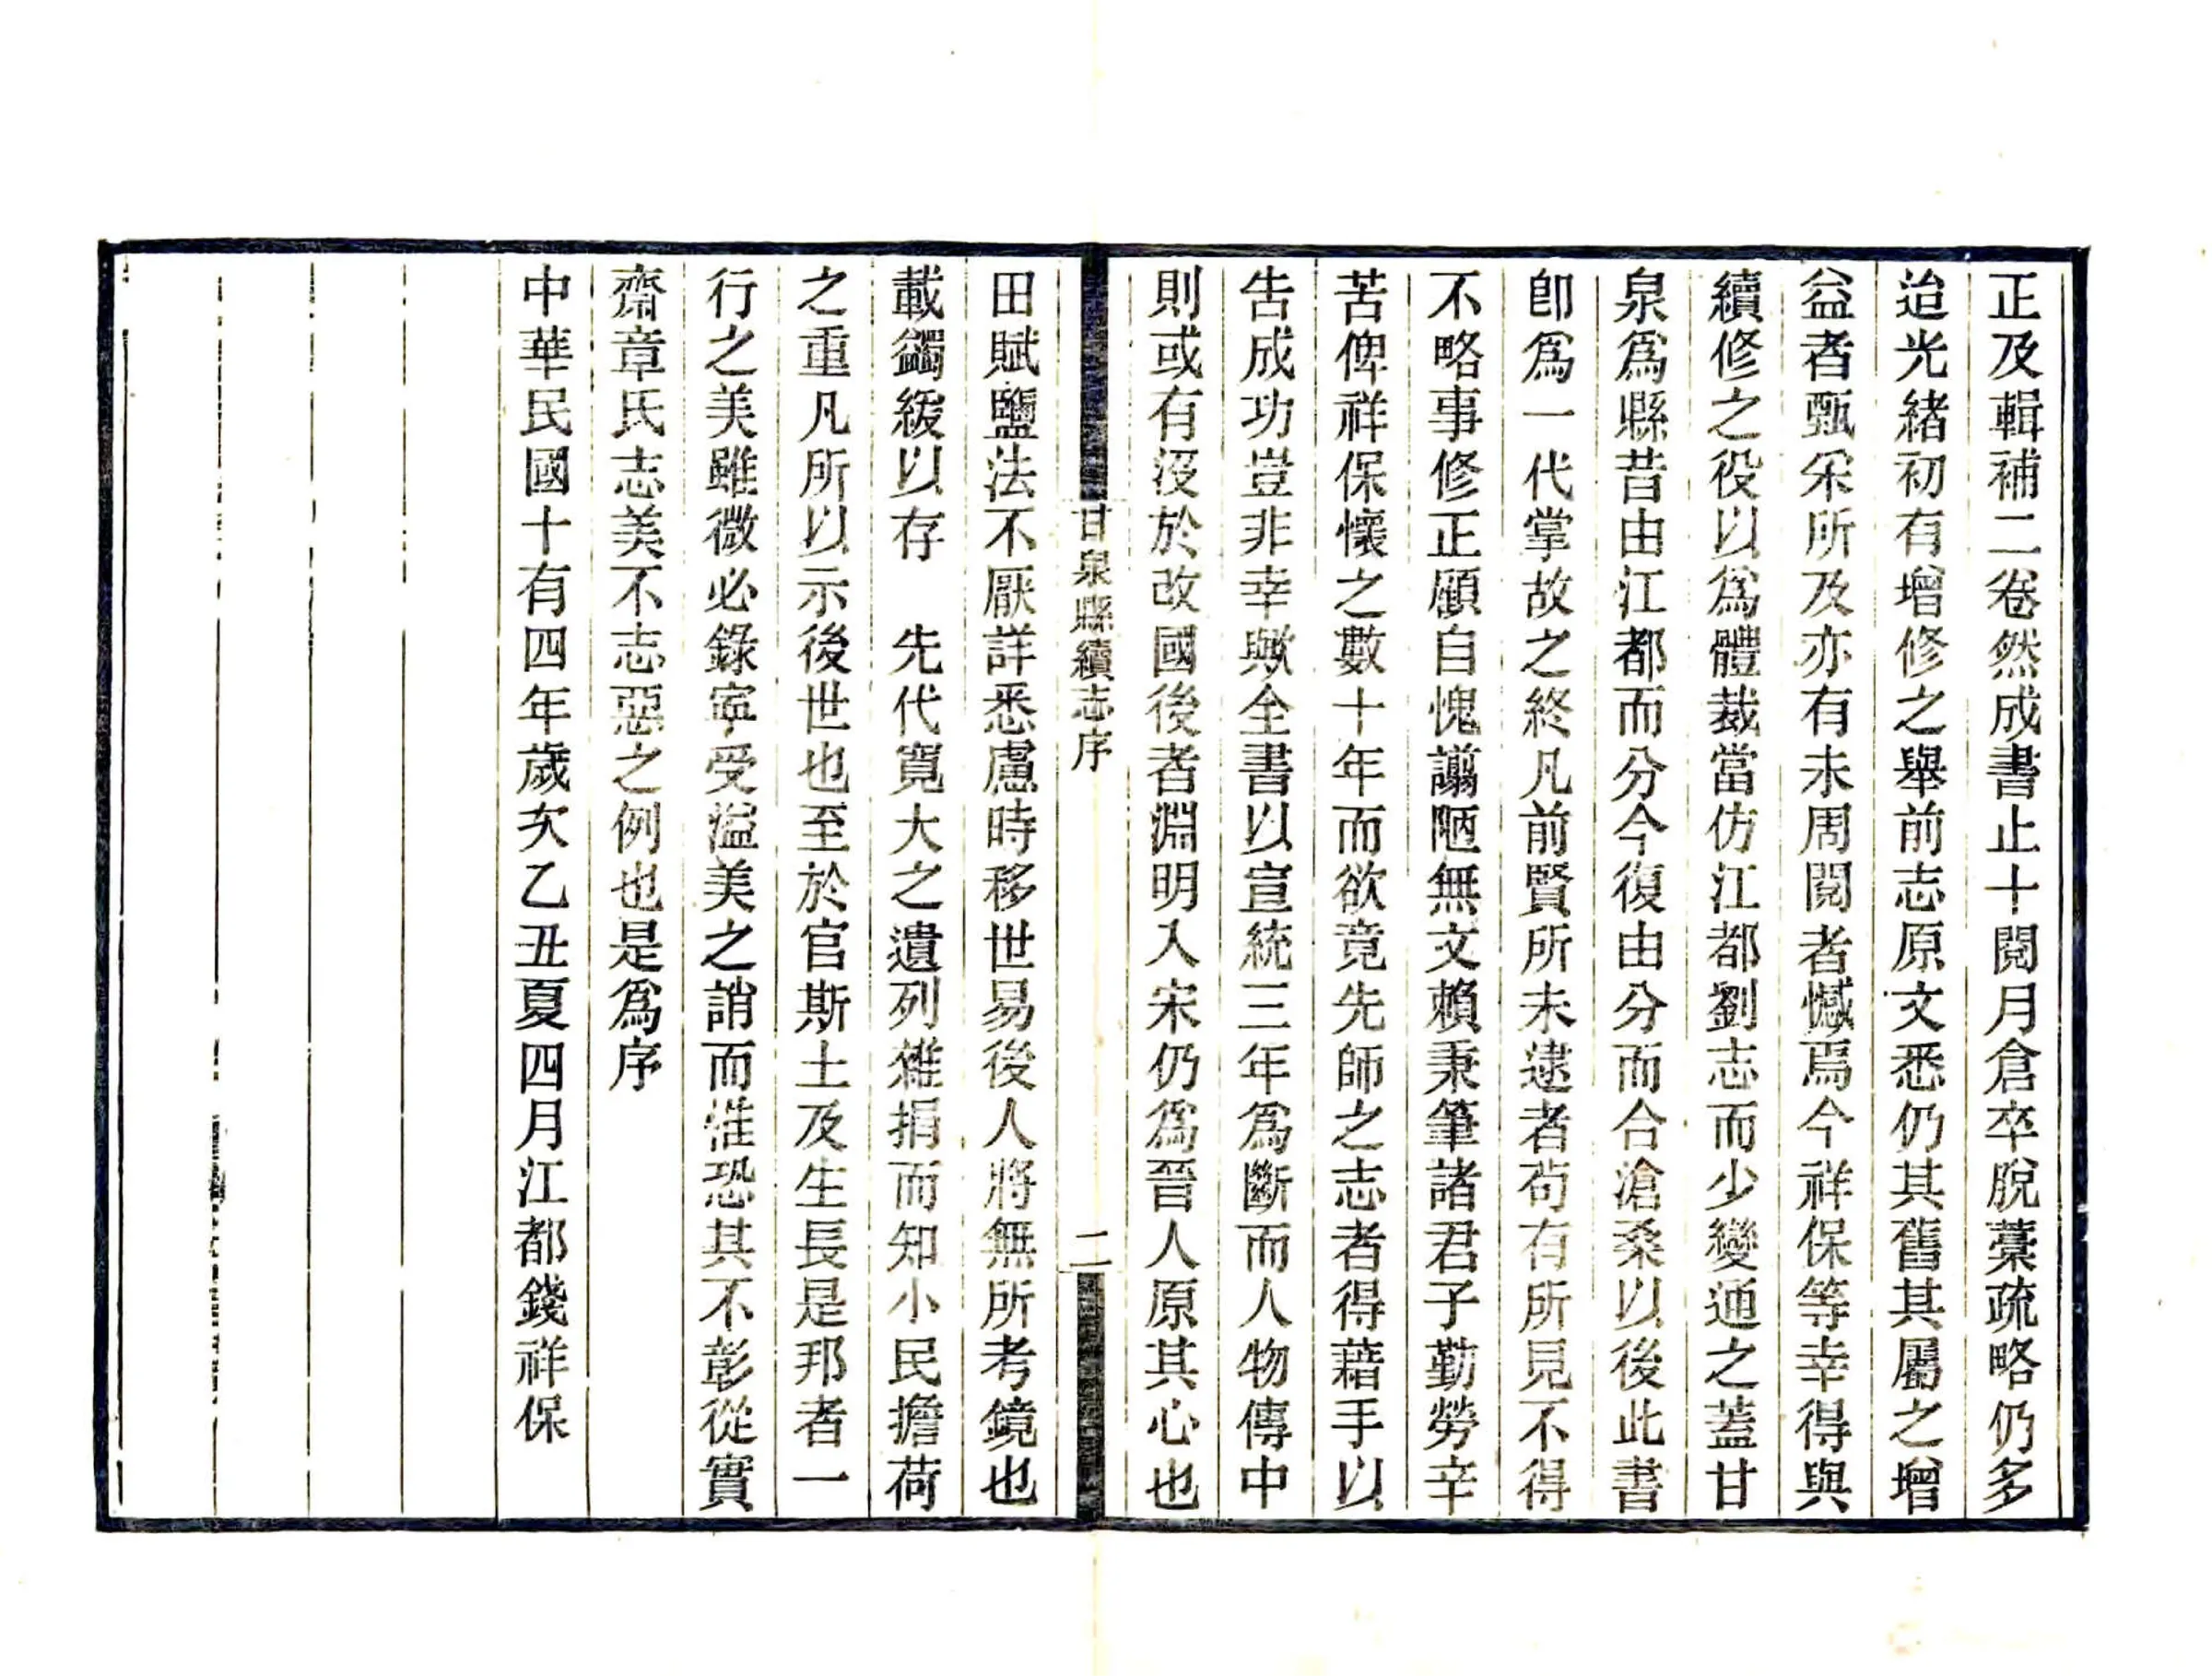 正及輯補二卷然成書止十閱月倉卒脫藁疏略仍多
迨光緒初有增修之舉前志原文悉仍其舊其屬之增
益者甄采所及亦有未周閱者憾焉今祥保等幸得與
續修之役以爲體裁當仿江都劉志而少變通之蓋甘
泉爲縣昔由江都而分今復由分而合滄桑以後此書
卽爲一代掌故之終凡前賢所未逮者苟有所見不得
不略事修正顧自愧謭陋無文賴秉筆諸君子勤勞辛
苦俾祥保懷之數十年而欲竟先師之志者得藉手以
告成功豈非幸歟全書以宣統三年爲斷而人物傳中
則或有沒於改國後者淵明入宋仍爲晉人原其心也
甘泉縣續志序　二
田賦鹽法不厭詳悉慮時移世易後人將無所考鏡也
載蠲緩以存　先代寬大之遺列雜捐而知小民擔荷
之重凡所以示後世也至於官斯土及生長是邦者一
行之美雖微必錄寧受溢美之誚而惟恐其不彰從實
齋章氏志美不志惡之例也是爲序
中華民國十有四年歲次乙丑夏四月江都錢祥保